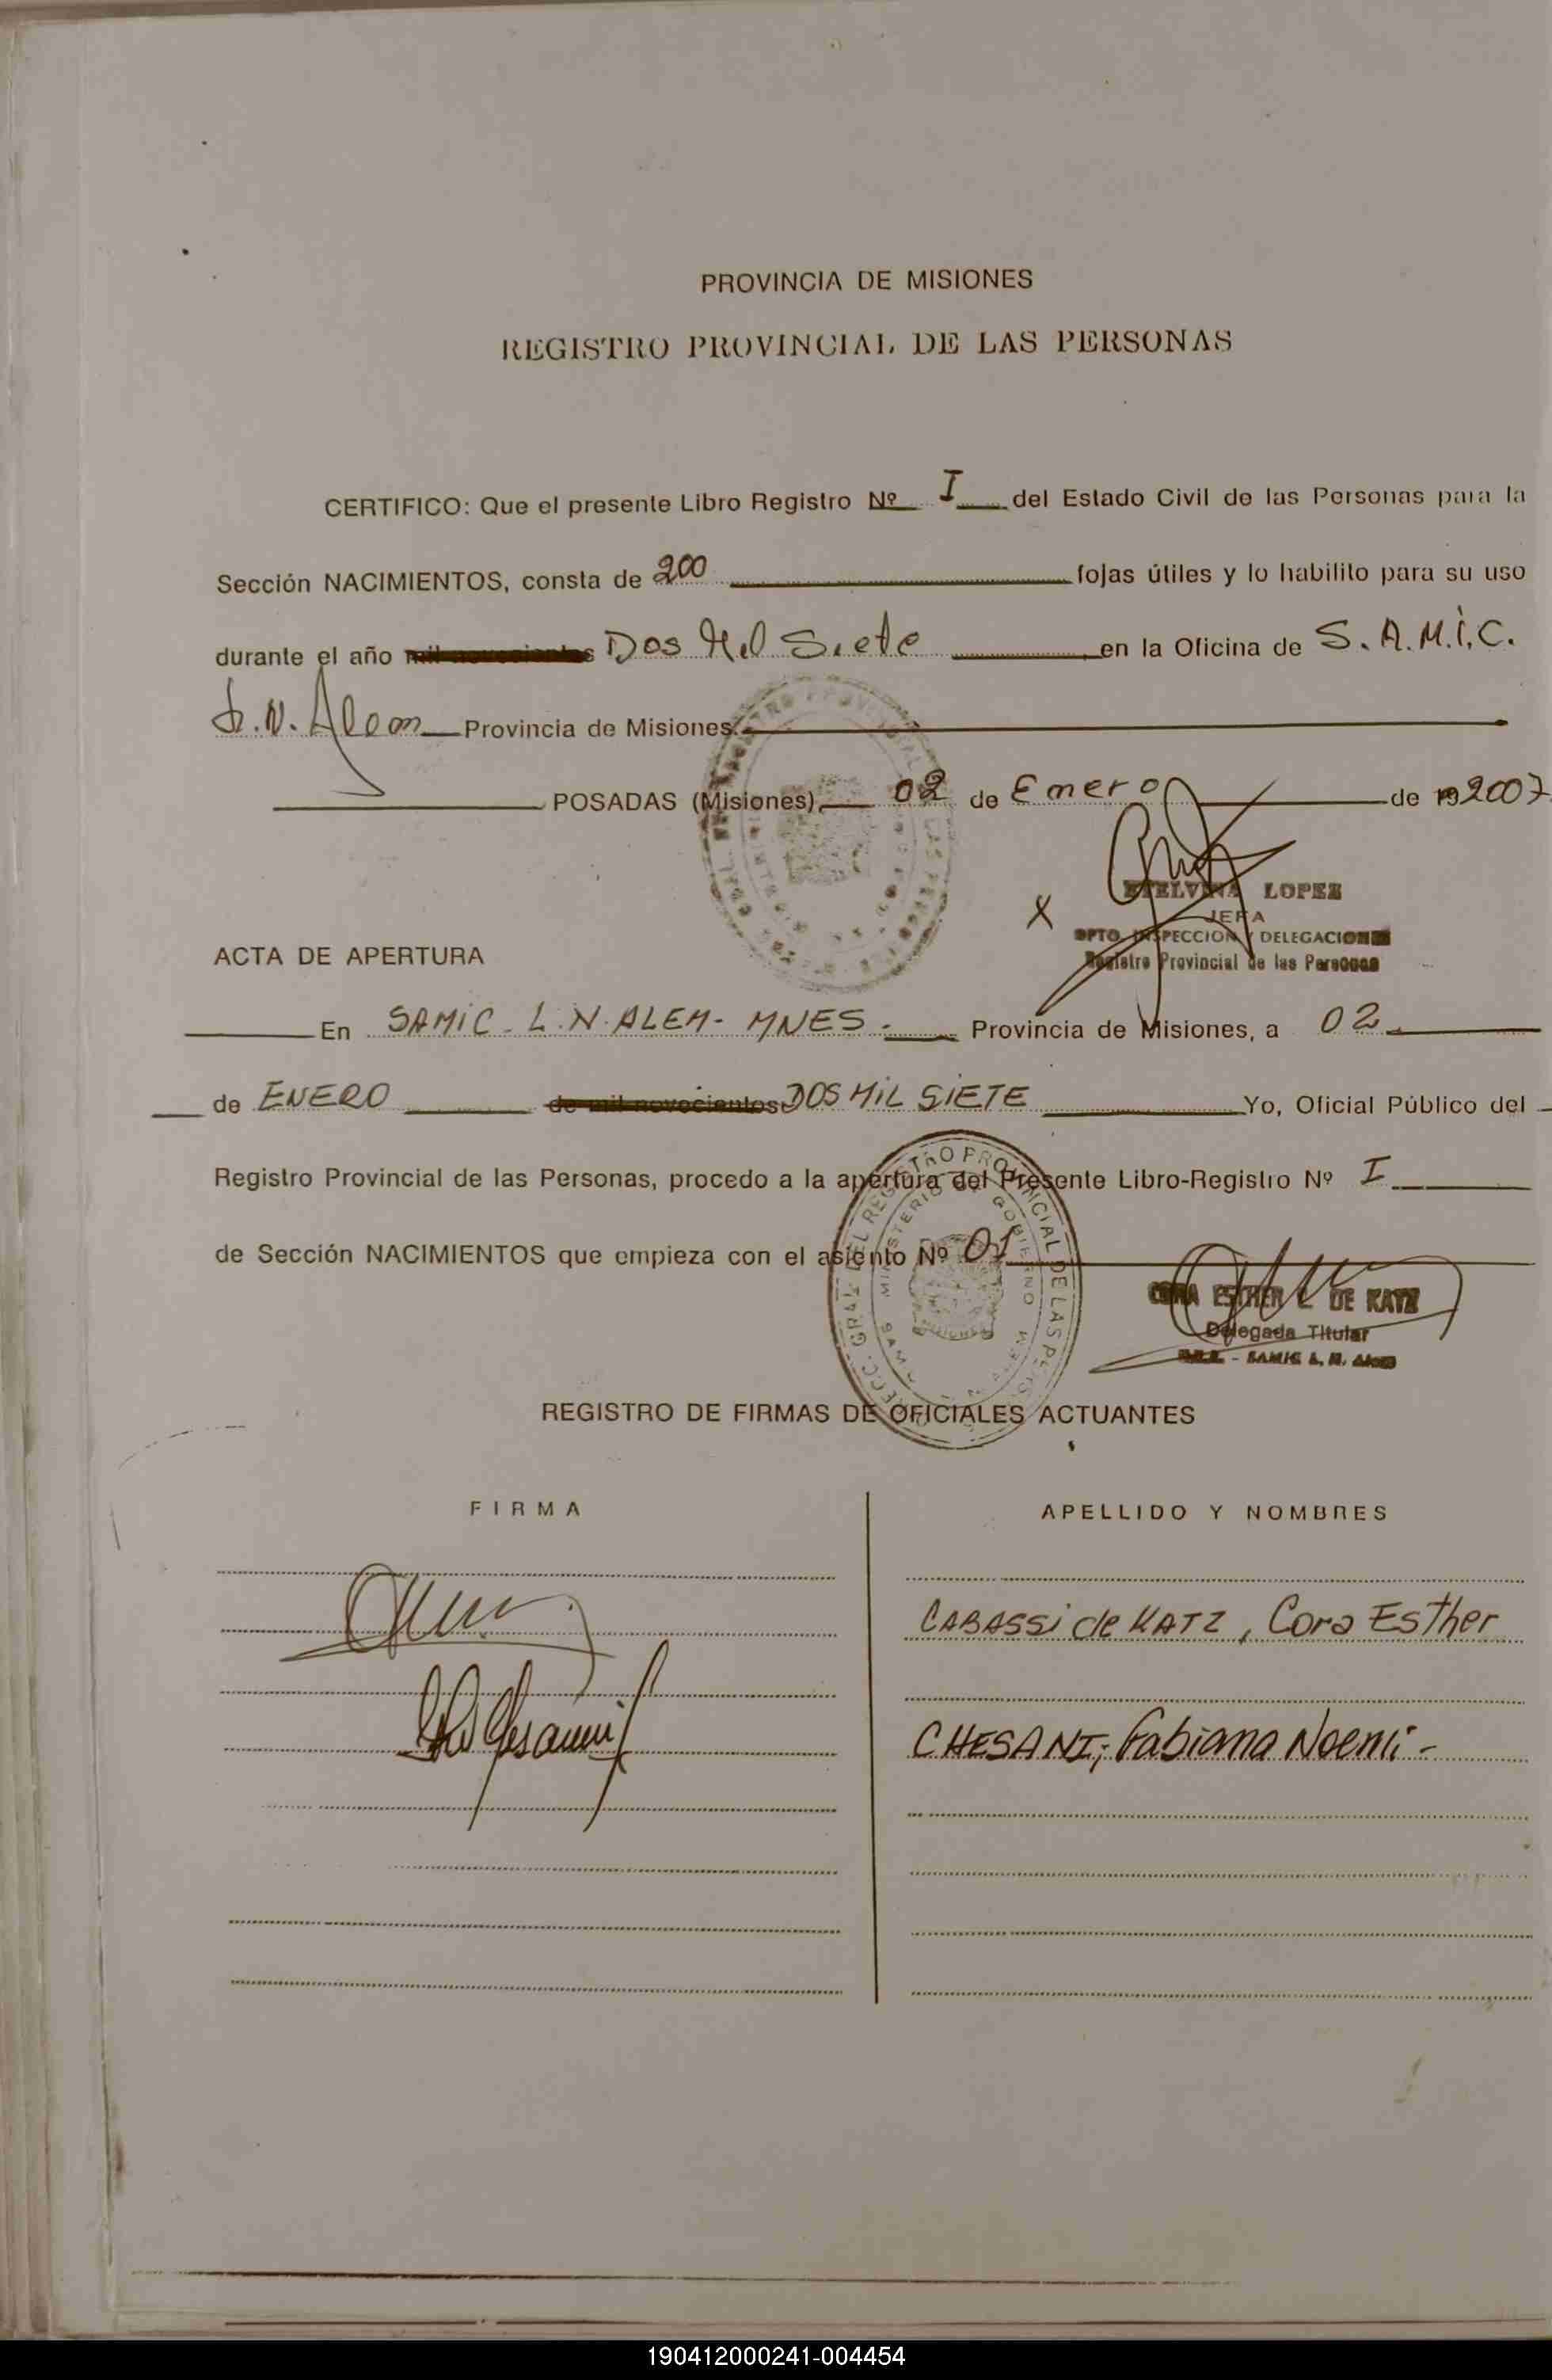 PROVINCIA DE MISIONES
REGISTRO PROVINCIAL DE LAS PERSONAS
CERTIFICO: Que el presente Libro Registro Nº I del Estado Civil de las Personas para la
Sección NACIMIENTOS, consta de 200 fojas útiles y lo habilito para su uso
durante el año mil novecientos Dos Mil Siete en la Oficina de S.A.M.I.C.
L.N. Alem Provincia de Misiones.
POSADAS (Misiones), 02 de Enero de 19 2007
ETELVINA LOPEZ
JEFA
DPTO. INSPECCION Y DELEGACIONES
Registro Provincial de las Personas
ACTA DE APERTURA
En SAMIC - L.N. ALEM - MNES. Provincia de Misiones, a 02
de ENERO de mil novecientos DOS MIL SIETE Yo, Oficial Público del
Registro Provincial de las Personas, procedo a la apertura del Presente Libro-Registro Nº I
de Sección NACIMIENTOS que empieza con el asiento Nº 01
CORA ESTHER C. DE KATZ
Delegada Titular
SAMIC L. N. Alem
REGISTRO DE FIRMAS DE OFICIALES ACTUANTES
FIRMA APELLIDO Y NOMBRES
CABASSI de KATZ, Cora Esther
CHESANI, Fabiana Noemi -
190412000241-004454